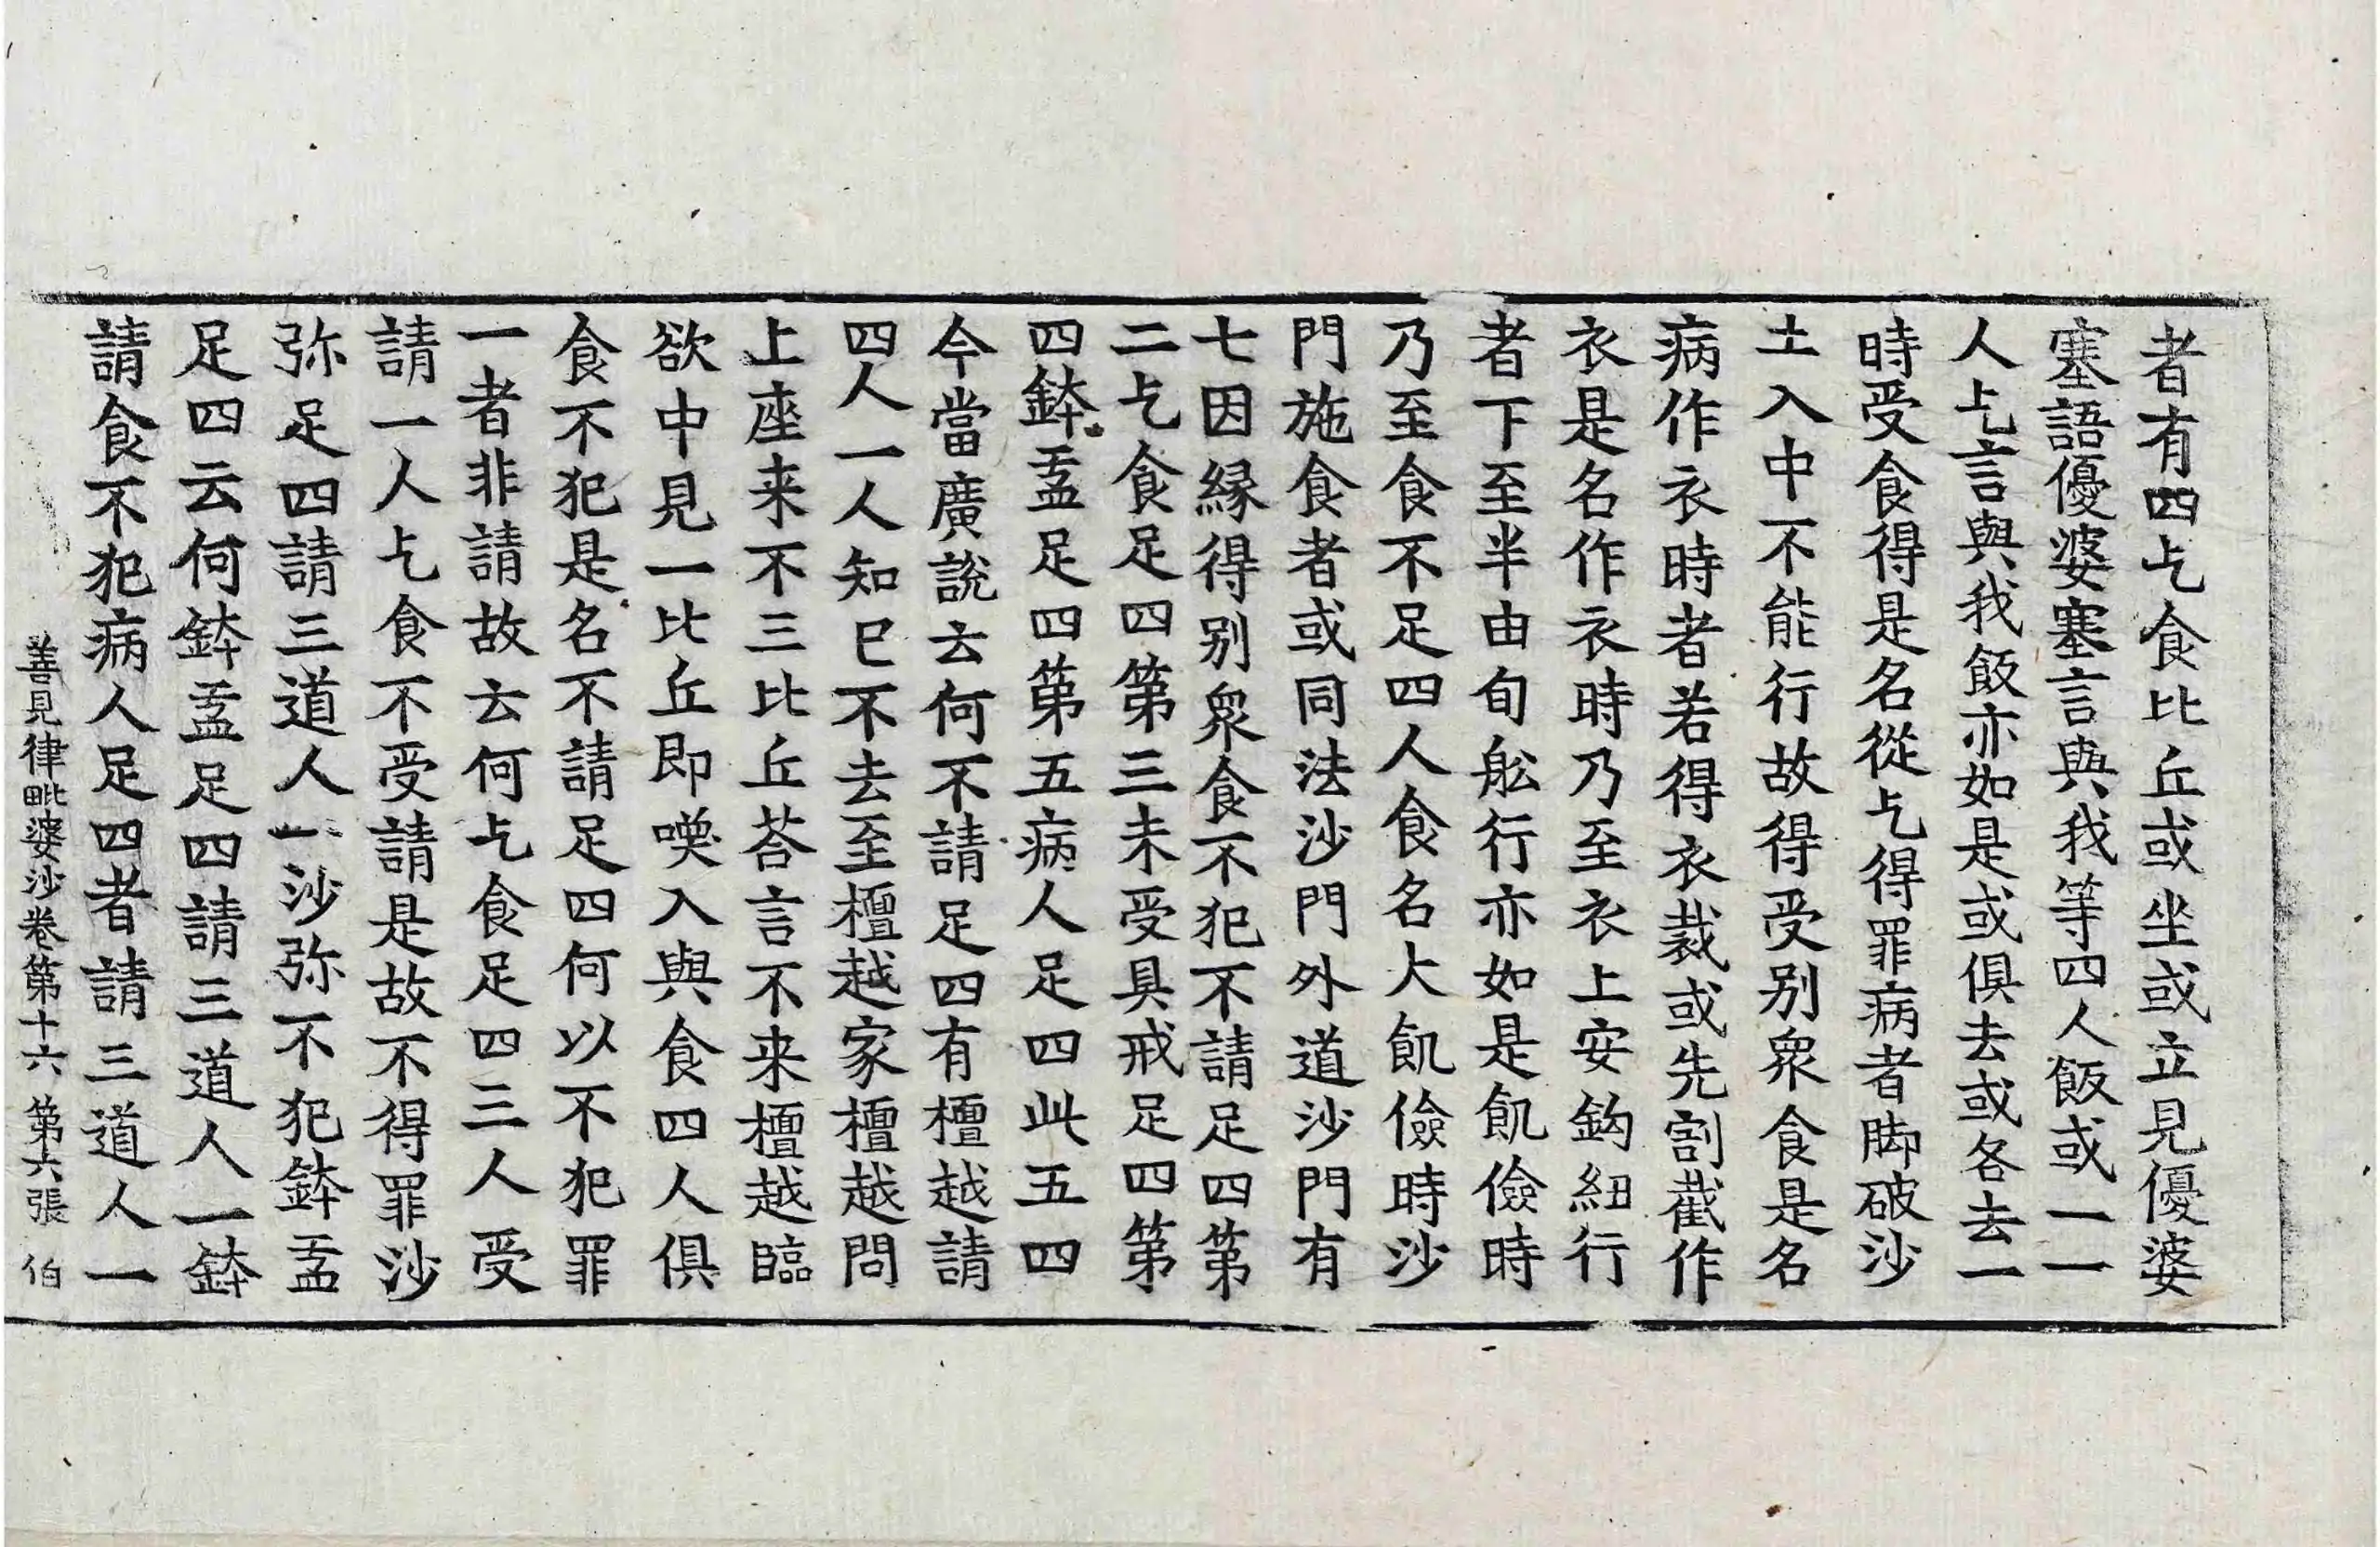 者有四乞食比丘或坐或立見優婆
塞語優婆塞言與我等四人飯或一一
人乞言與我飯亦如是或俱去或各去一
時受食得是名從乞得罪病者脚破沙
土入中不能行故得受别衆食是名
病作衣時者若得衣裁或先割截作
衣是名作衣時乃至衣上安鈎紐行
者下至半由旬舩行亦如是飢儉時
乃至食不足四人食名大飢儉時沙
門施食者或同法沙門外道沙門有
七因縁得别衆食不犯不請足四第
二乞食足四第三未受具戒足四第
四鉢盂足四第五病人足四此五四
今當廣說云何不請足四有檀越請
四人一人知已不去至檀越家檀越問
上座来不三比丘荅言不来檀越臨
欲中見一比丘即喚入與食四人俱
食不犯是名不請足四何以不犯罪
一者非請故云何乞食足四三人受
請一人乞食不受請是故不得罪沙
弥足四請三道人一沙弥不犯鉢盂
足四云何鉢盂足四請三道人一鉢
請食不犯病人足四者請三道人一
善見律毗婆沙卷第十六 第六張 伯